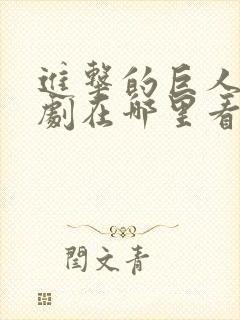 進擊的巨人
劇在哪里看
閆文青